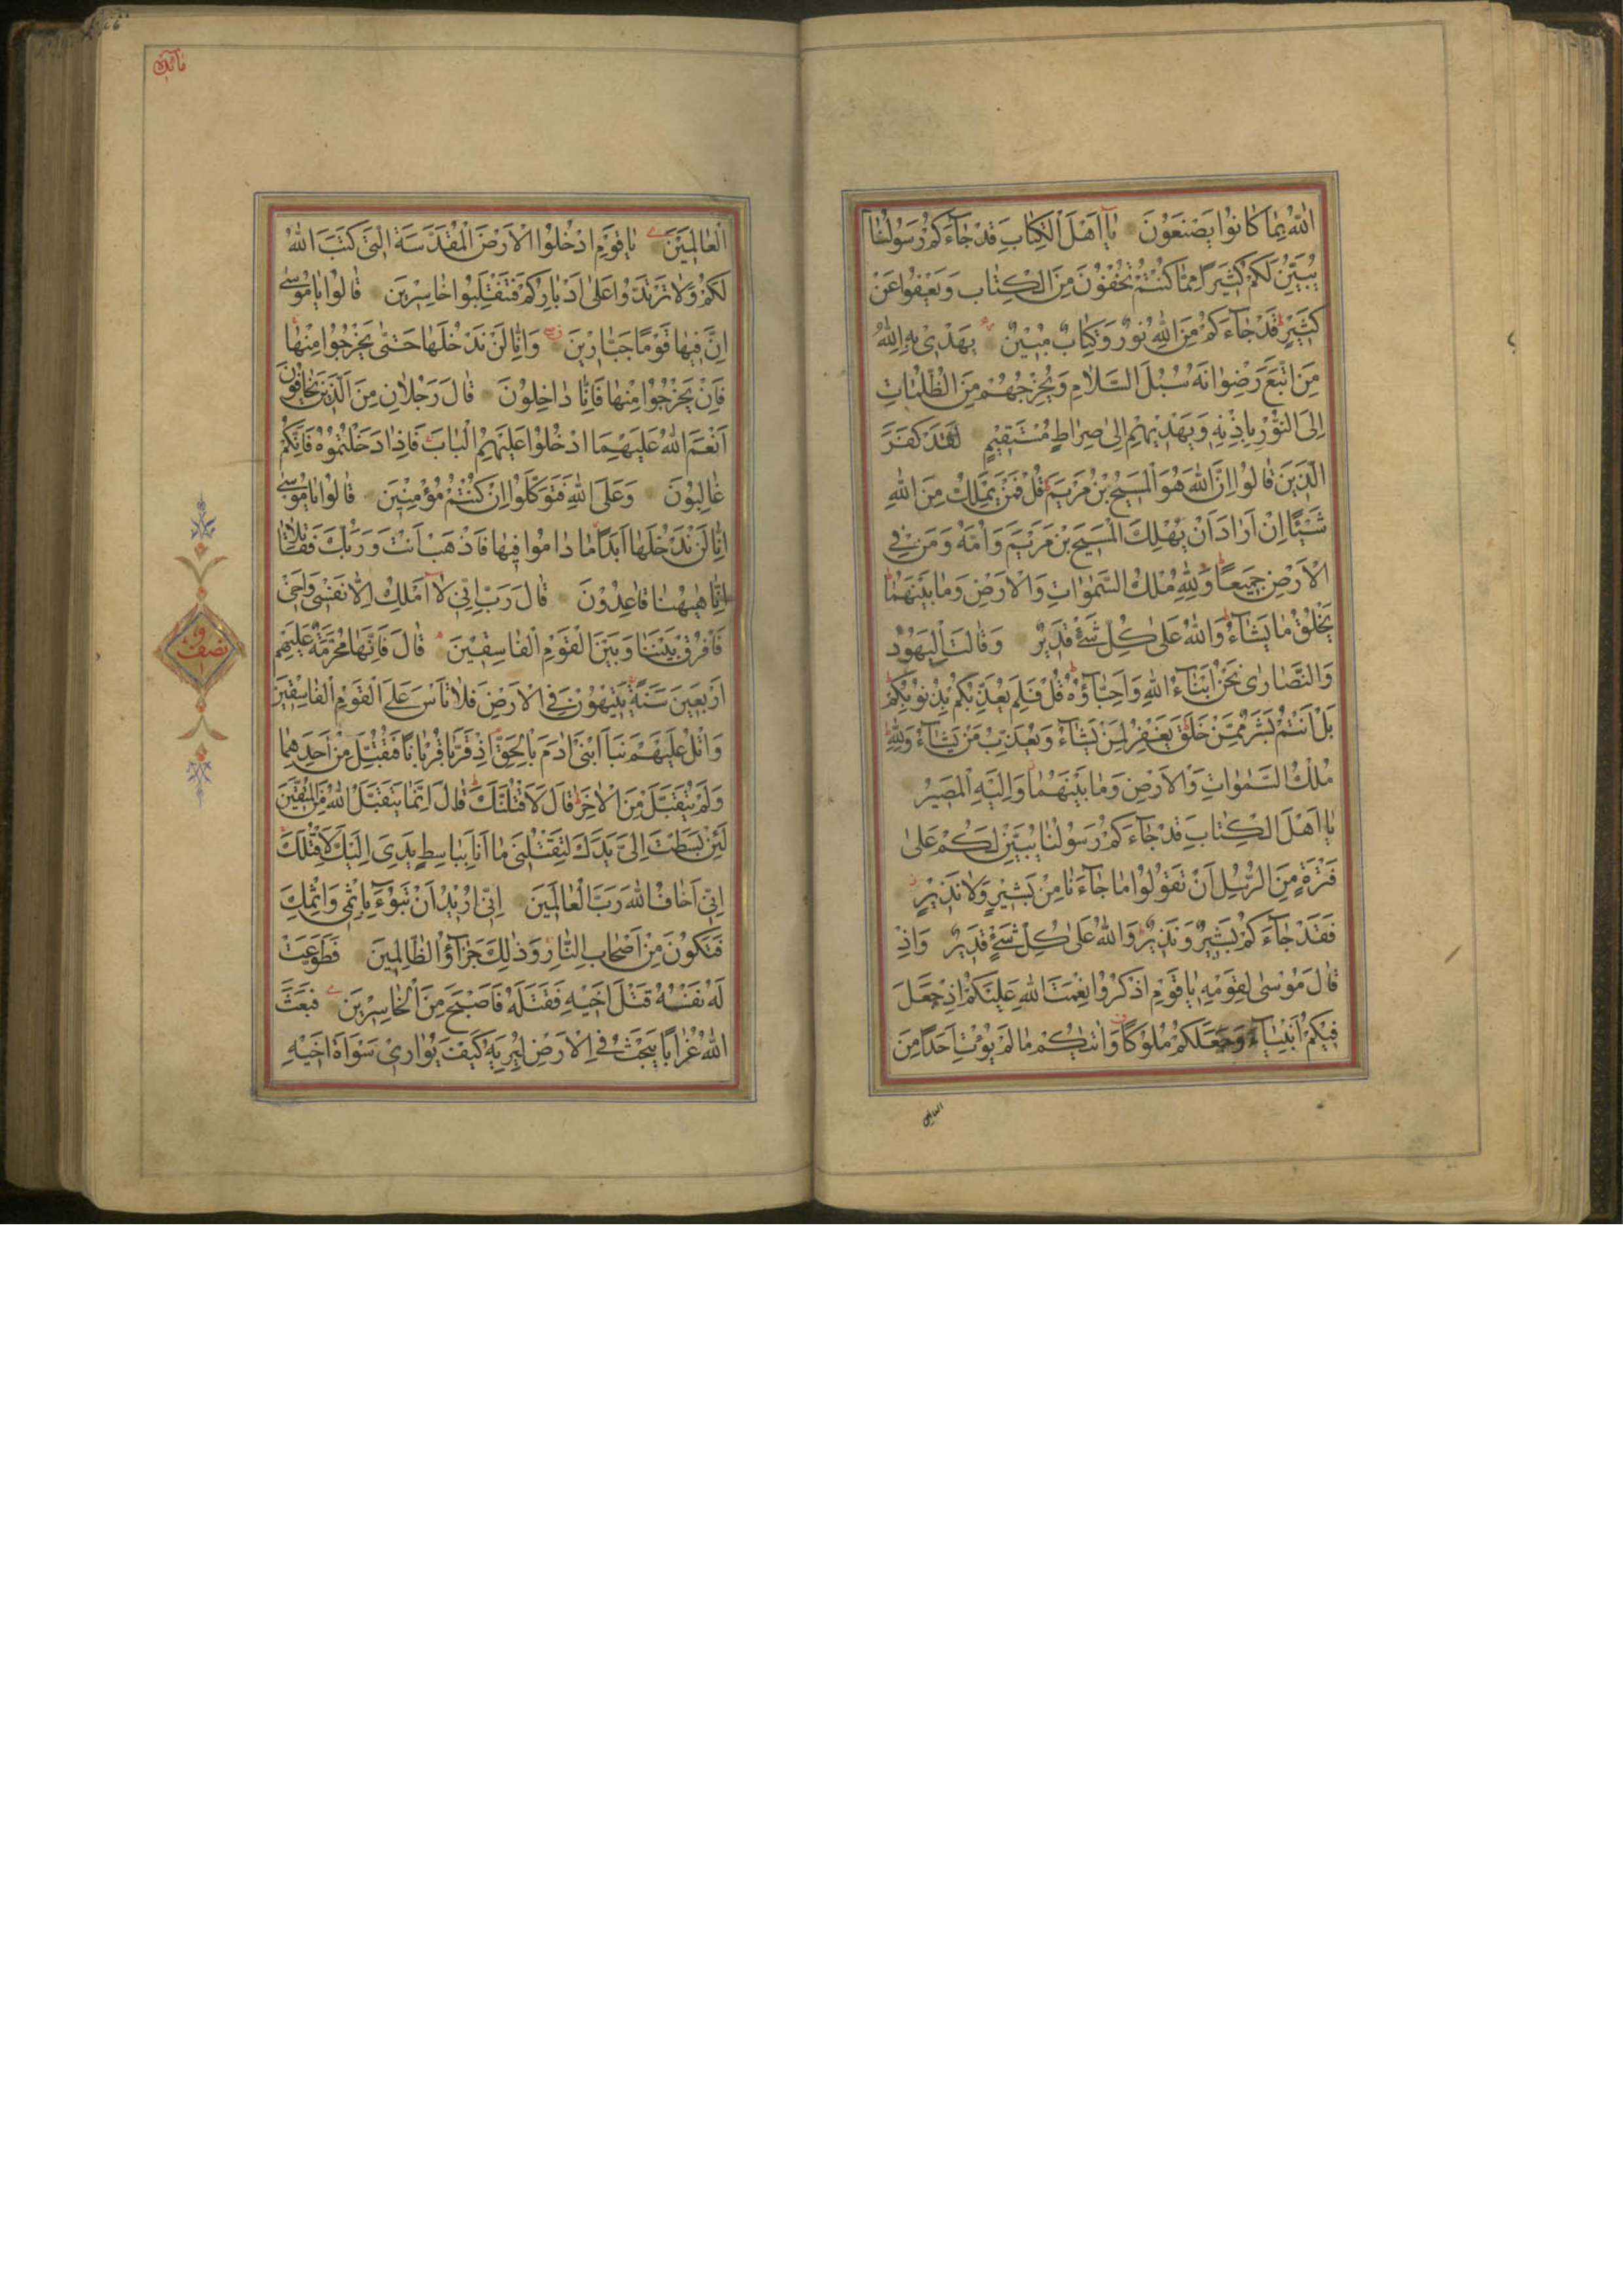 اللّٰهُ بِمَا كَانُوا يَصْنَعُونَ يَٓا اَهْلَ الْكِتَابِ قَدْ جَٓاءَكُمْ رَسُولُنَا
يُبَيِّنُ لَكُمْ كَثِيرًا مِمَّا كُنْتُمْ تُخْفُونَ مِنَ الْكِتَابِ وَيَعْفُوا عَنْ
كَثِيرٍ قَدْ جَٓاءَكُمْ مِنَ اللّٰهِ نُورٌ وَكِتَابٌ مُبِينٌ يَهْدِى بِهِ اللّٰهُ
مَنِ اتَّبَعَ رِضْوَانَهُ سُبُلَ السَّلَامِ وَيُخْرِجُهُمْ مِنَ الظُّلُمَاتِ
اِلَى النُّورِ بِاِذْنِهِ وَيَهْدِيهِمْ اِلٰى صِرَاطٍ مُسْتَقِيمٍ لَقَدْ كَفَرَ
الَّذِينَ قَالُوا اِنَّ اللّٰهَ هُوَ الْمَسِيحُ بْنُ مَرْيَمَ قُلْ فَمَنْ يَمْلِكُ مِنَ اللّٰهِ
شَيْئًا اِنْ اَرَادَ اَنْ يُهْلِكَ الْمَسِيحَ بْنَ مَرْيَمَ وَاُمَّهُ وَمَنْ فِى
الْاَرْضِ جَمِيعًا وَلِلّٰهِ مُلْكُ السَّمٰوَاتِ وَالْاَرْضِ وَمَا بَيْنَهُمَا
يَخْلُقُ مَا يَشَٓاءُ وَاللّٰهُ عَلٰى كُلِّ شَىْءٍ قَدِيرٌ وَقَالَتِ الْيَهُودُ
وَالنَّصَارٰى نَحْنُ اَبْنَٓاءُ اللّٰهِ وَاَحِبَّٓاؤُهُ قُلْ فَلِمَ يُعَذِّبُكُمْ بِذُنُوبِكُمْ
بَلْ اَنْتُمْ بَشَرٌ مِمَّنْ خَلَقَ يَغْفِرُ لِمَنْ يَشَٓاءُ وَيُعَذِّبُ مَنْ يَشَٓاءُ وَلِلّٰهِ
مُلْكُ السَّمٰوَاتِ وَالْاَرْضِ وَمَا بَيْنَهُمَا وَاِلَيْهِ الْمَصِيرُ
يَٓا اَهْلَ الْكِتَابِ قَدْ جَٓاءَكُمْ رَسُولُنَا يُبَيِّنُ لَكُمْ عَلٰى
فَتْرَةٍ مِنَ الرُّسُلِ اَنْ تَقُولُوا مَا جَٓاءَنَا مِنْ بَشِيرٍ وَلَا نَذِيرٍ
فَقَدْ جَٓاءَكُمْ بَشِيرٌ وَنَذِيرٌ وَاللّٰهُ عَلٰى كُلِّ شَىْءٍ قَدِيرٌ وَاِذْ
قَالَ مُوسٰى لِقَوْمِهِ يَا قَوْمِ اذْكُرُوا نِعْمَتَ اللّٰهِ عَلَيْكُمْ اِذْ جَعَلَ
فِيكُمْ اَنْبِيَٓاءَ وَجَعَلَكُمْ مُلُوكًا وَاٰتٰيكُمْ مَا لَمْ يُؤْتِ اَحَدًا مِنَ
العالمين
مائدة
الْعَالَمِينَ يَا قَوْمِ ادْخُلُوا الْاَرْضَ الْمُقَدَّسَةَ الَّتِى كَتَبَ اللّٰهُ
لَكُمْ وَلَا تَرْتَدُّوا عَلٰى اَدْبَارِكُمْ فَتَنْقَلِبُوا خَاسِرِينَ قَالُوا يَا مُوسٰى
اِنَّ فِيهَا قَوْمًا جَبَّارِينَ وَاِنَّا لَنْ نَدْخُلَهَا حَتّٰى يَخْرُجُوا مِنْهَا
فَاِنْ يَخْرُجُوا مِنْهَا فَاِنَّا دَاخِلُونَ قَالَ رَجُلَانِ مِنَ الَّذِينَ يَخَافُونَ
اَنْعَمَ اللّٰهُ عَلَيْهِمَا ادْخُلُوا عَلَيْهِمُ الْبَابَ فَاِذَا دَخَلْتُمُوهُ فَاِنَّكُمْ
غَالِبُونَ وَعَلَى اللّٰهِ فَتَوَكَّلُوا اِنْ كُنْتُمْ مُؤْمِنِينَ قَالُوا يَا مُوسٰى
اِنَّا لَنْ نَدْخُلَهَا اَبَدًا مَا دَامُوا فِيهَا فَاذْهَبْ اَنْتَ وَرَبُّكَ فَقَاتِلَا
اِنَّا هٰيهُنَا قَاعِدُونَ قَالَ رَبِّ اِنِّى لَٓا اَمْلِكُ اِلَّا نَفْسِى وَاَخِى
فَافْرُقْ بَيْنَنَا وَبَيْنَ الْقَوْمِ الْفَاسِقِينَ قَالَ فَاِنَّهَا مُحَرَّمَةٌ عَلَيْهِمْ
اَرْبَعِينَ سَنَةً يَتِيهُونَ فِى الْاَرْضِ فَلَا تَاْسَ عَلَى الْقَوْمِ الْفَاسِقِينَ
وَاتْلُ عَلَيْهِمْ نَبَاَ ابْنَىْ اٰدَمَ بِالْحَقِّ اِذْ قَرَّبَا قُرْبَانًا فَتُقُبِّلَ مِنْ اَحَدِهِمَا
وَلَمْ يُتَقَبَّلْ مِنَ الْاٰخَرِ قَالَ لَاَقْتُلَنَّكَ قَالَ اِنَّمَا يَتَقَبَّلُ اللّٰهُ مِنَ الْمُتَّقِينَ
لَئِنْ بَسَطْتَ اِلَىَّ يَدَكَ لِتَقْتُلَنِى مَا اَنَا بِبَاسِطٍ يَدِىَ اِلَيْكَ لِاَقْتُلَكَ
اِنِّى اَخَافُ اللّٰهَ رَبَّ الْعَالَمِينَ اِنِّى اُرِيدُ اَنْ تَبُوٓءَ بِاِثْمِى وَاِثْمِكَ
فَتَكُونَ مِنْ اَصْحَابِ النَّارِ وَذٰلِكَ جَزَٓاؤُا الظَّالِمِينَ فَطَوَّعَتْ
لَهُ نَفْسُهُ قَتْلَ اَخِيهِ فَقَتَلَهُ فَاَصْبَحَ مِنَ الْخَاسِرِينَ فَبَعَثَ
اللّٰهُ غُرَابًا يَبْحَثُ فِى الْاَرْضِ لِيُرِيَهُ كَيْفَ يُوَارِى سَوْاَةَ اَخِيهِ
نصف